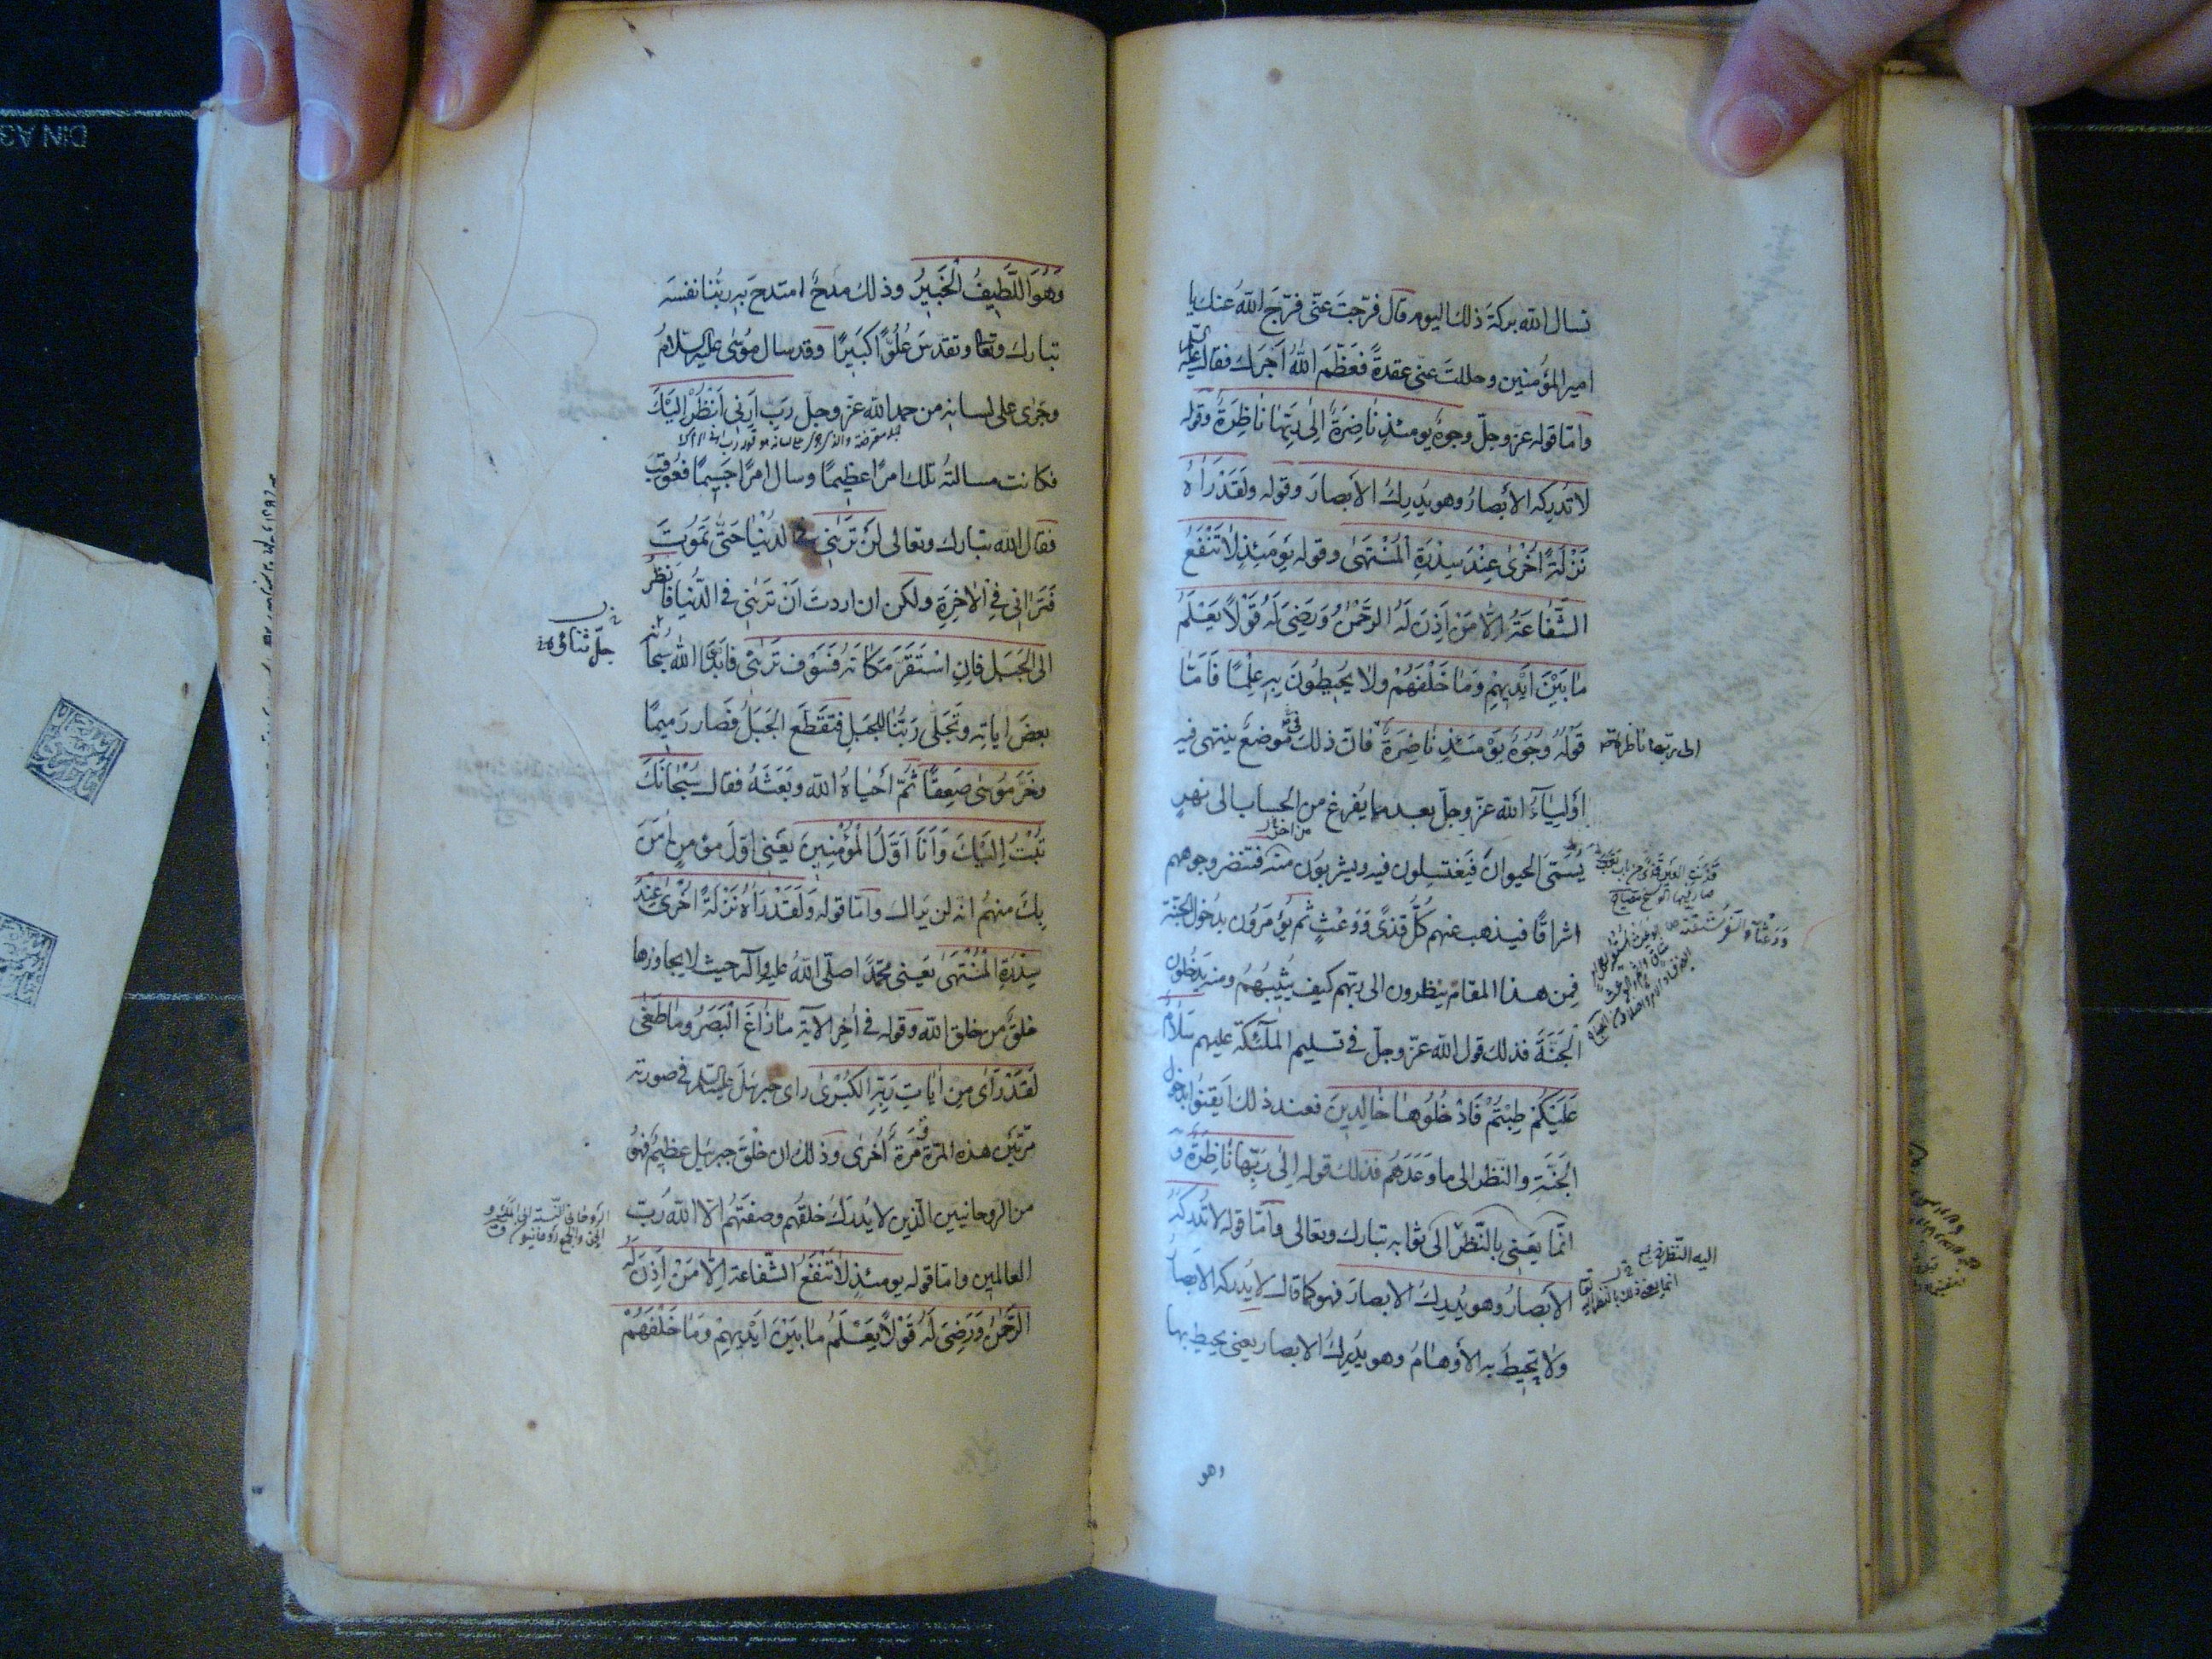 نسال الله بركة ذلك اليوم قال فرّجتَ عنّى فرّج اللّهُ عنك يا
امير المؤمنين وحللتَ عنّى عقدةً فعَظّمَ اللّهُ اَجرَك فقال عليه السّلم
وامّا قوله عزّ وجلّ وجوهٌ يومئذٍ ناضِرَةٌ اِلى رَبِّها ناظِرَةٌ وقوله
لا تُدركه الأبصارُ وهو يُدرِكُ الأبصارَ وقوله ولَقَدْ رَاٰهُ
نَزْلَةً اُخْرىٰ عِنْدَ سِدْرَةِ الْمُنْتَهىٰ وقوله يَومَئِذٍ لا تَنْفَعُ
الشَّفاعَةُ اِلّا مَنْ اَذِنَ لَهُ الرَّحْمٰنُ وَرَضِىَ لَهُ قَوْلاً يَعْلَمُ
مٰا بَيْنَ اَيْديهِمْ وَمٰا خَلْفَهُمْ ولا يُحيطُونَ بِهِ عِلْمًا فَاَمّا
قَوْلُهُ وُجُوهٌ يَوْمَئِذٍ ناضِرَةٌ فانّ ذلك فى موضعٍ ينتهى فيه
الى ربّها ناظرة
اَوْلِيٰآءُ اللّه عزّ وجلّ بعد ما يُفرغ من الحساب الى نهرٍ
من اخرى
يُسَمّىَ الحيوانَ فَيَغتسِلون فيه ويشربُون منه فتنضر وجوههم
اشراقًا فيذهب عنهم كُلُّ قذىً وَوَعْثٍ ثم يؤمَرُون بدخول الجنّة
فمِن هذا المقام ينظرون الى ربّهم كيف يُثيبُهُم ومنه يَدخلون
الجَنَّةَ فذلك قول الله عزّ وجلّ فى تسليم الملٰئكة عليهم سَلامٌ
عَلَيْكُم طِبْتُمْ فَادْخُلُوهٰا خٰالِدِينَ فعند ذلك اَيقنُوا بدخول
الجَنَّةِ والنّظر الى ما وَعَدَهُم فذلك قوله اِلىٰ رَبِّهٰا نٰاظِرَةٌ وَ
انّما يَعنِى بالنّظرْ الى ثوابه تبارك وتعالى وامّا قوله لا تُدركهُ
اليه النّظر
الأبصارُ وهو يُدرِكُ الابصارَ فهو كما قال لا يُدركه الابصا
وَلا تحيطُ به الأَوهٰامُ وهو يُدرِكُ الابصار يعنى يحيط بها
وهو
وَهُوَ اللَّطِيفُ الْخَبِيرُ وذلك مَدحٌ امتدحَ به ربُّنا نفسَه
تبارك وتعالى وتقدّسَ عُلُوًّا كَبيرًا وقد سال مُوسٰى عليه السّلامُ
وجَرٰى على لسانه من حمد الله عزّ وجلّ رَبّ اَرِنى اَنْظُرْ اِلَيْكَ
فكانت مسالتُه تلك امرًا عظيمًا وسال امرًا جَسِيمًا فعُوقِبَ
فقال الله تبارك وتعالى لَنْ تَرٰنى فى الدُنْيٰا حَتّٰى تَمُوتَ
فَتَرٰانى فى الاٰخِرَةِ ولكن ان اردتَ اَنْ تَرٰنى فى الدّنيا فانظُر
الى الجَبَلِ فَاِنِ اسْتَقَرَّ مَكَانَهُ فَسَوْفَ تَرٰنى فابدَى اللّه سُبحانه
جلّ ثناؤه
بعضَ اياتِه وتَجَلّى رَبُّنٰا للجَبَلِ فتَقَطّعَ الجَبَلُ فصَار رَميمًا
وخَرَّ مُوسٰى صَعِقًا ثُمّ اَحْيٰاهُ اللّه وبَعَثَهُ فقال سُبْحٰانَكَ
تُبْتُ اِلَيْكَ وَاَنَا اَوَّلُ الْمُؤْمِنِينَ يَعْنى اوّلَ مؤمنٍ اٰمَنَ
بِكَ منهُم انّه لن يراك وامّا قوله وَلَقَدْ رَاٰهُ نَزْلَةً اُخْرٰى عِنْدَ
سِدْرَةِ الْمُنْتَهىٰ يَعنى محمّدًا صلّى اللّهُ عليه وآله حيث لا يجاوزها
خلقٌ من خلق اللّه وقوله فى اٰخِر الآية مٰا زٰاغَ الْبَصَرُ ومٰا طَغٰى
لَقَدْ رَاٰى مِن اٰيٰاتِ رَبِّهِ الكُبْرٰى راى جبرئيلَ عليه السّلم فى صورته
مرّتَيْنِ هذه المرّة ومَرّةً اُخرى وذلك ان خلْقَ جبرئيل عظيمٌ فهُوَ
من الروحانيين الّذين لا يُدرَكُ خلقُهم وصِفتُهُم الّا اللّه رَبّ
العالمين وامّا قوله يومئذٍ لا تَنْفَعُ الشّفاعة اِلّا مَنْ اَذِنَ لَهُ
الرَّحْمٰنُ وَرَضِىَ لَهُ قَوْلاً يَعْلَمُ مٰا بَيْنَ اَيْديهِمْ وَمٰا خَلْفَهُمْ
DIN A3